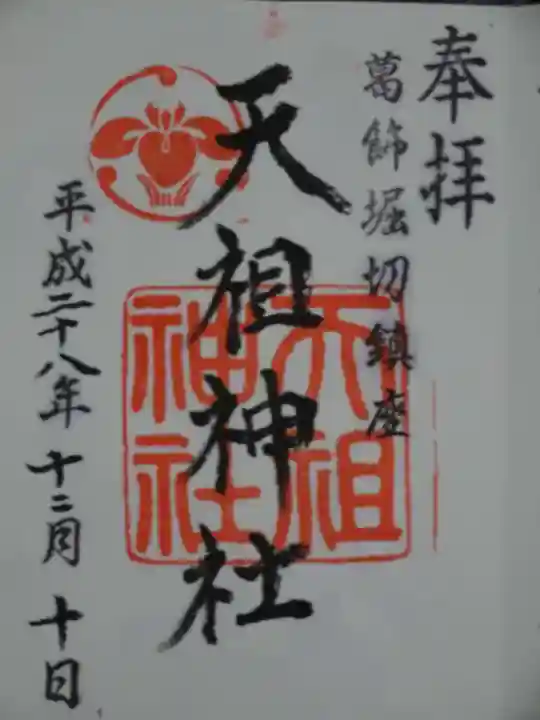 奉拝
葛飾堀切鎮座
天祖神社
天祖神社
平成二十八年 十二月 十日